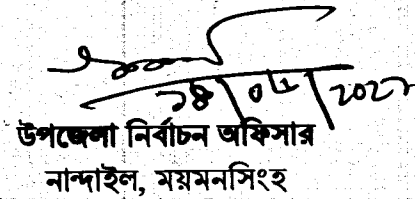 ১৪/০৮/২০২২
উপজেলা নির্বাচন অফিসার
নান্দাইল, ময়মনসিংহ